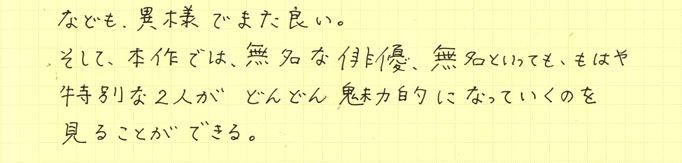 なども、異様でまた良い。
そして、本作では、無名な俳優、無名といっても、もはや
特別な2人が どんどん魅力的になっていくのを
見ることができる。